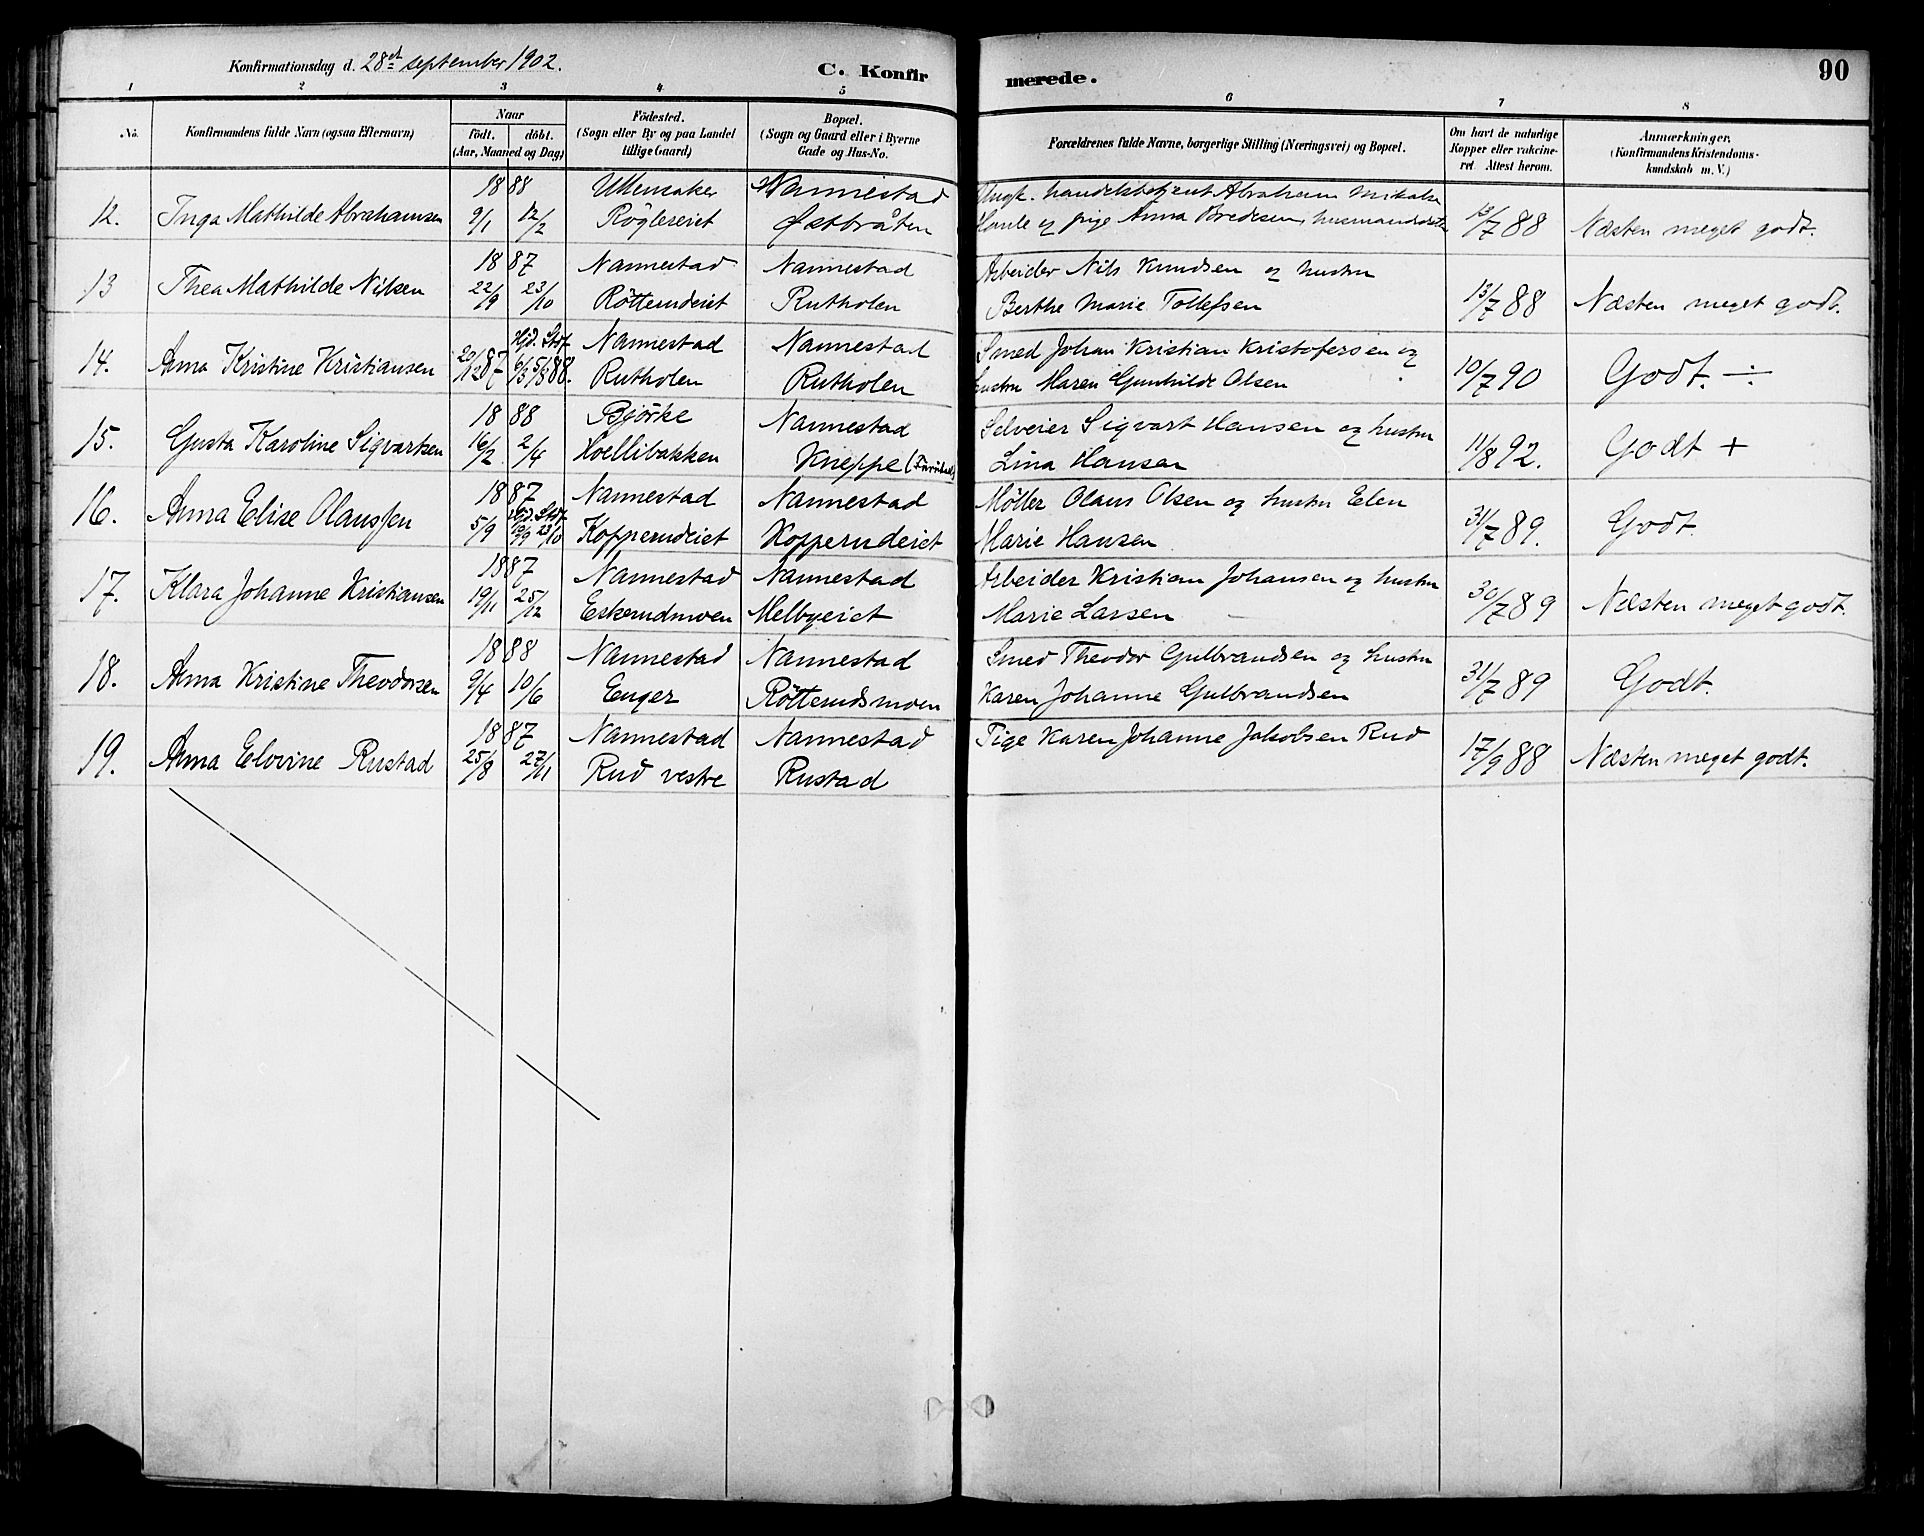 Konfirmationsdag d. 28de september 1902.
C. Konfir
merede.
90
1 2 3 4 5 6 7 8
No.
Konfirmandens fulde Navn (ogsaa Efternavn)
Naar
födt. döbt.
(Aar, Maaned og Dag)
Födested.
(Sogn eller By og paa Landet
tillige Gaard)
Bopæl.
(Sogn og Gaard eller i Byerne
Gade og Hus-No.
Forældrenes fulde Navne, borgerlige Stilling (Næringsvei) og Bopæl.
Om havt de naturlige
Kopper eller vakcine-
ret. Attest herom.
Anmærkninger,
(Konfirmandens Kristendoms-
kundskab m. V.)
1888 Ullensaker Nannestad Ungk. handelsbetjent Abraham
12. Inga Mathilde Abrahamsen 9/1 12/2 Röglereiet Østbråten og pige Anna Bredesen, 13/7 88 Næsten meget godt.
1887 Nannestad Nannestad Arbeider Nils Knudsen og hustru
13 Thea Mathilde Nilsen 22/9 23/10 Rötterudeiet Rutholen Berthe Marie Tollefsen 13/7 88 Næsten meget godt.
Hjd. Stdf. Nannestad Nannestad Smed Johan Kristian Kristofersen og
14. Anna Kristine Kristiansen 20/12 87 6/3 5/3 88. Rutholen Rutholen hustru Maren Gunhilde Olsen 10/7 90 Godt. ÷
1888 Björke Nannestad Selveier Sigvart Hansen og hustru
15. Gusta Karoline Sigvartsen 16/2 2/4 Hoellibakken Kneppe Lina Hansen 11/8 92. Godt +
1887 Nannestad Nannestad Møller Olaus Olsen og hustru Elen
16. Anna Elise Olaussen 5/9 Hjd. Stdf. 19/9 23/10 Kopperudeiet Kopperudeiet Marie Hansen 31/7 89. Godt.
1887 Nannestad Nannestad Arbeider Kristian Johansen og hustru
17. Klara Johanne Kristiansen 19/11 25/12 Eskerudmoen Melbyeiet Marie Larsen 30/7 89 Næsten meget godt.
1888 Nannestad Nannestad Smed Theodor Gulbrandsen og hustru
18. Anna Kristine Theodorsen 9/4 10/6 Enger Rötterudsmoen Karen Johanne Gulbrandsen 31/7 89 Godt.
1887 Nannestad Nannestad Pige Karen Johanne Jakobsen Rud
19. Anna Elovine Rustad 25/8 27/11 Rud vestre Rustad 17/9 88 Næsten meget godt.